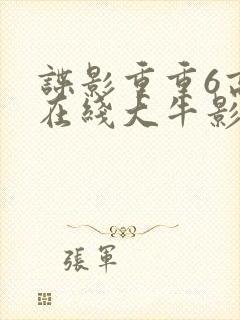 諜影重重6高
在綫大牛影
張軍